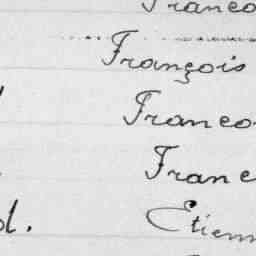 Franco
François
Franco
Franc
ol. Etienn